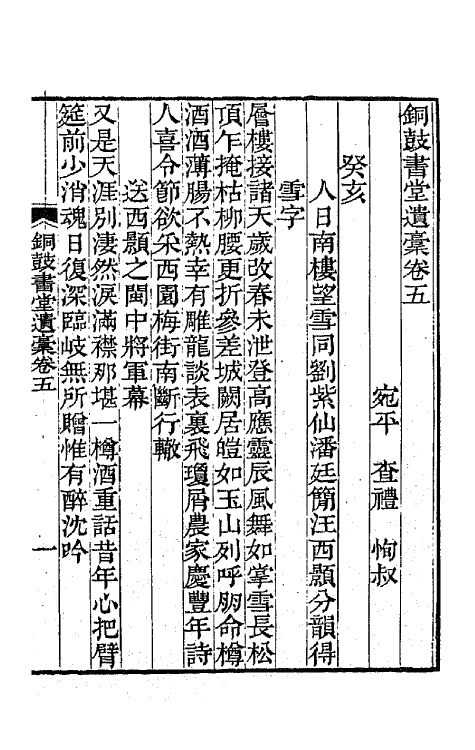 銅鼓書堂遺稾卷五
宛平　查禮　恂叔
癸亥
人日南樓望雪同劉紫仙潘廷簡汪西顥分韻得
雪字
層樓接諸天歲改春未泄登高應靈辰風舞如掌雪長松
頂乍掩枯柳腰更折參差城闕居皚如玉山列呼朋命樽
酒酒薄腸不熱幸有雕龍談表裏飛瓊屑農家慶豐年詩
人喜令節欲采西園梅街南斷行轍
送西顥之閩中將軍幕
又是天涯別淒然淚滿襟那堪一樽酒重話昔年心把臂
筵前少消魂日復深臨岐無所贈惟有醉沈吟
銅鼓書堂遺稾卷五　一